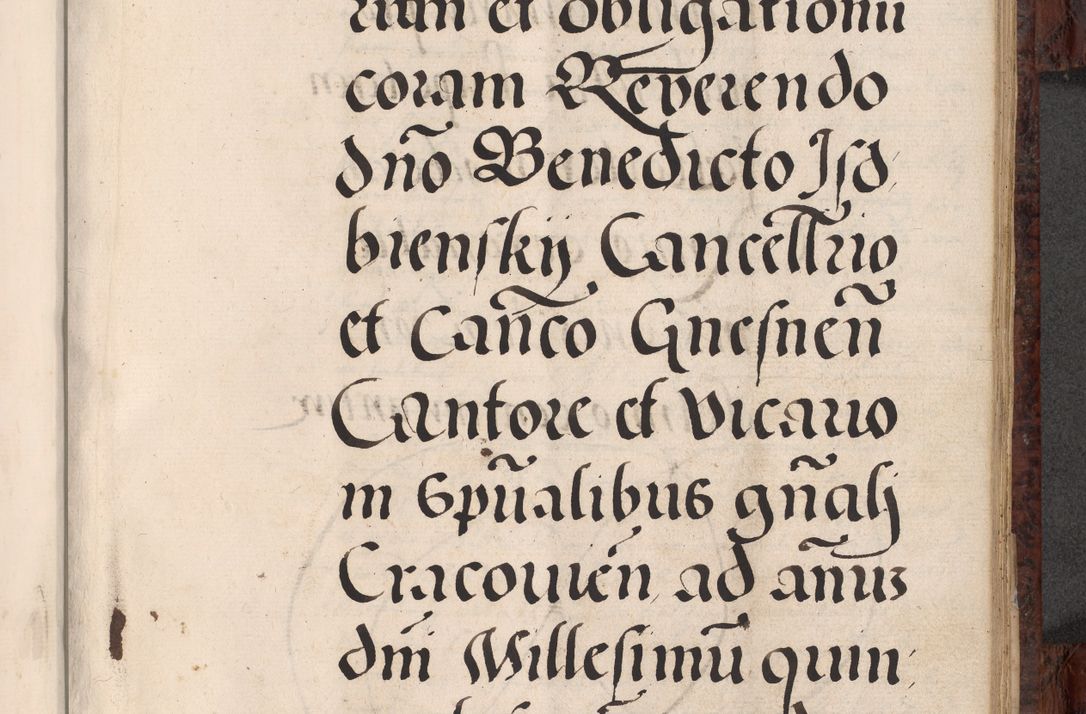 rum et obligationū
coram Reverendo
dn̄o Benedicto Jsd
biensky Cancell̄rio
et Can̄co Gnesnen̄
Cantore et vicario
in Spūalibus gn̄alj
Cracouien̄ ad an̄uꝫ
dn̄i Millesimū quin